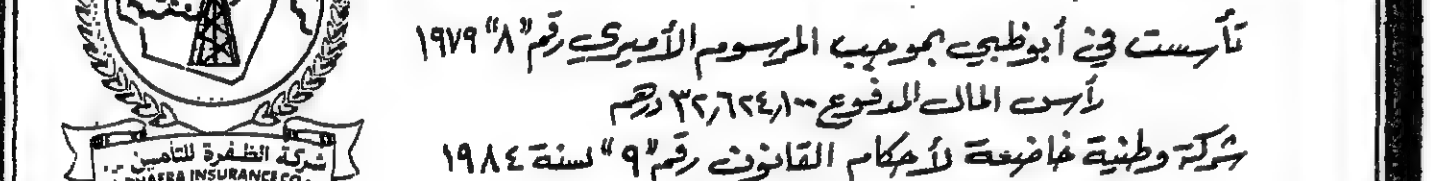 تأسست في أبوظبي بموجب المرسوم الأميري رقم "٨" ١٩٧٩
رأس المال المدفوع ٣٢,٦٢٤,١٠٠ درهم
شركة وطنية خاضعة لأحكام القانون رقم "٩" لسنة ١٩٨٤
شركة الظفرة للتأمين
DHAFRA INSURANCE CO